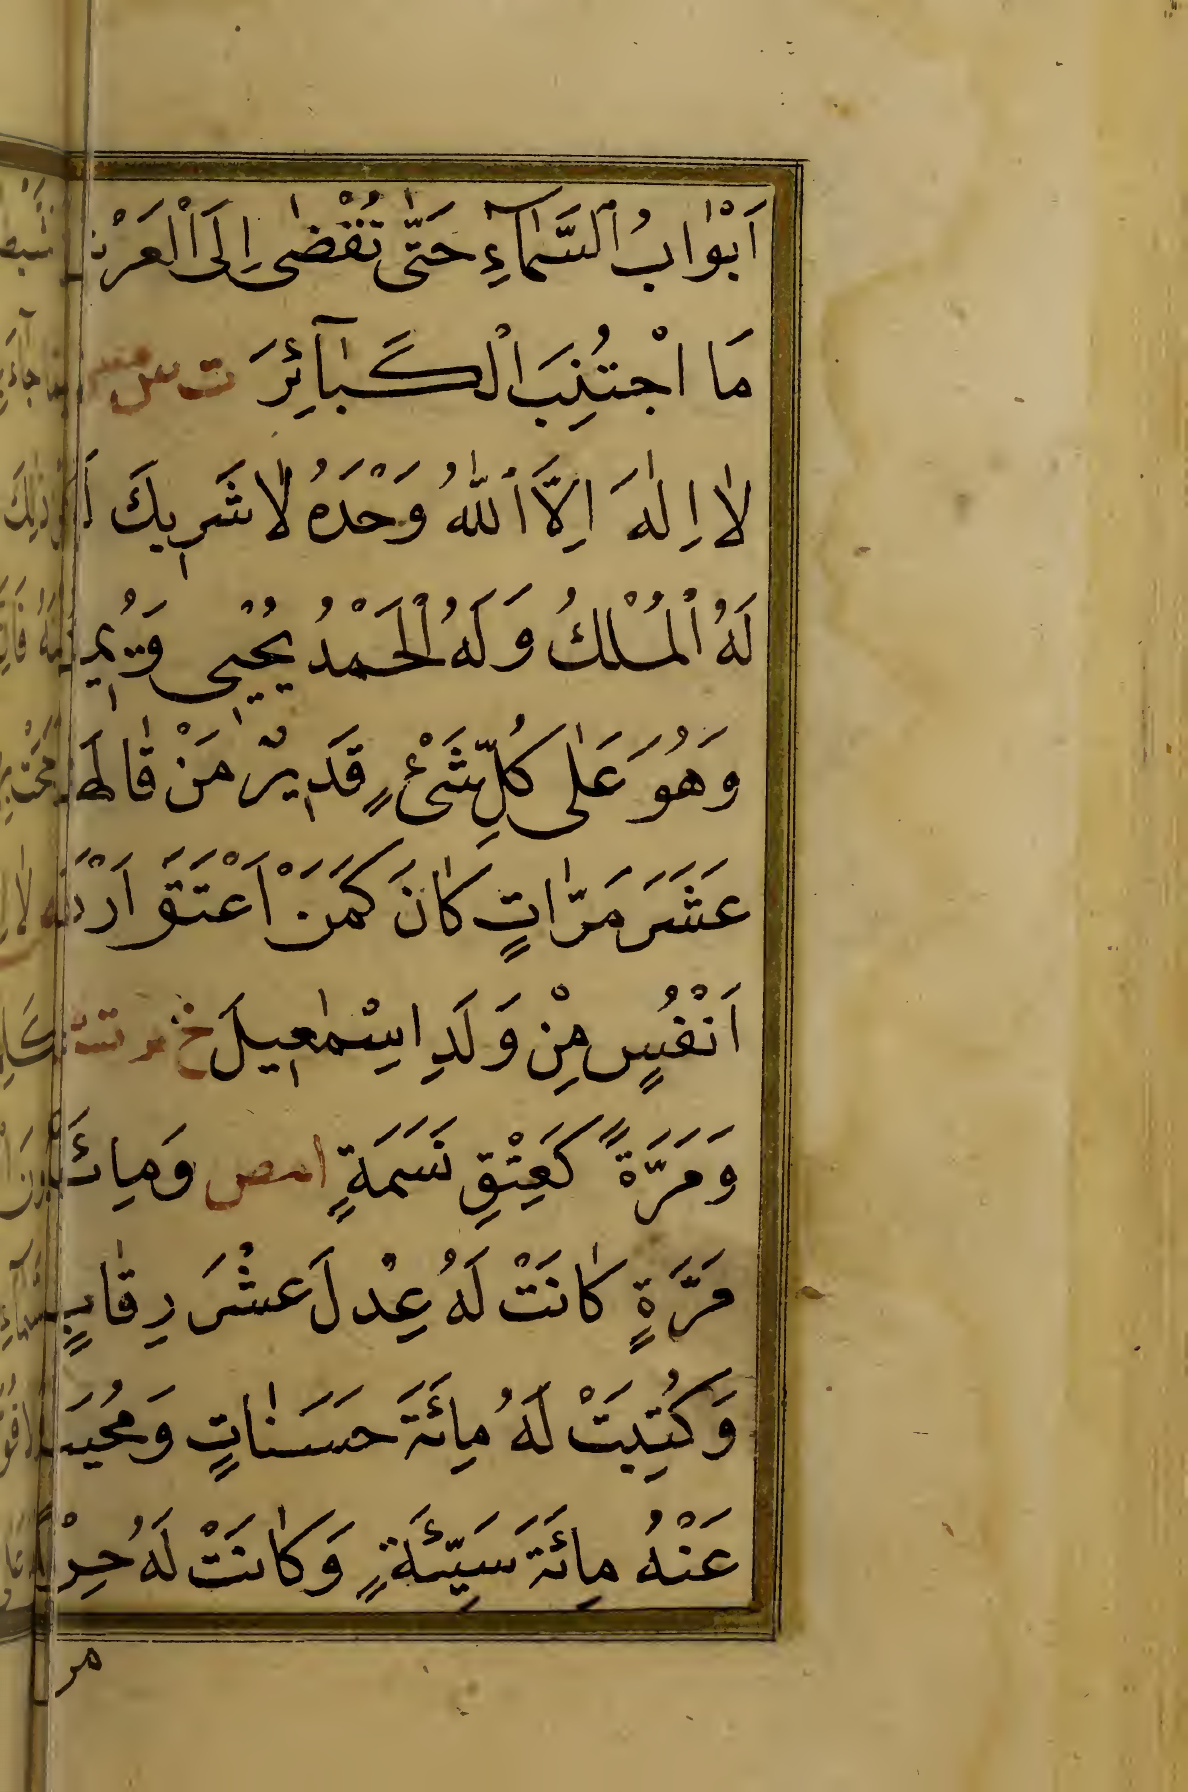 اَبْوٰابُ ٱلسَّمٰآءِ حَتّٰى تُقْضٰى اِلَى الْعَرْشِ
مَا اجْتُنِبَ الْكَبٰآئِرَ ت س
لٰا اِلٰهَ اِلَّا ٱللّٰهُ وَحْدَهُ لٰا شَرِيكَ
لَهُ ٱلْمُلْكُ وَلَهُ ٱلْحَمْدُ يُحْيِى وَيُمِ
وَهُوَ عَلٰى كُلِّ شَىْءٍ قَدِيرٌ مَنْ قٰالَهَا
عَشَرَ مَرّٰاتٍ كٰانَ كَمَنْ اَعْتَقَ اَرْ
اَنْفُسٍ مِنْ وَلَدِ اِسْمٰعِيلَ خ م ت
وَمَرَّةً كَعِتْقِ نَسَمَةٍ ا مص وَمِائَ
مَرَّةٍ كٰانَتْ لَهُ عِدْلَ عَشْرَ رِقٰابٍ
وَكُتِبَتْ لَهُ مِائَةَ حَسَنٰاتٍ وَمُحِيَ
عَنْهُ مِائَةَ سَيِّئَةٍ وَكٰانَتْ لَهُ حِرْ